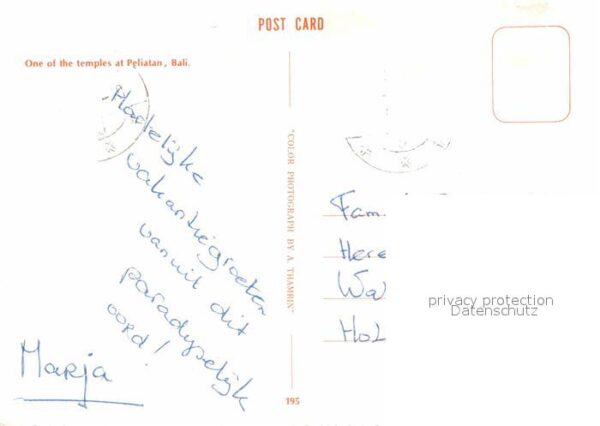 POST CARD
One of the temples at Peliatan, Bali.
Hartelijke
vakantiegroeten
vanuit dit
paradyselijk
oord!
Marja
"COLOR PHOTOGRAPH BY A. THAMRIN"
195
Fam.
Here
Wa
Hol
privacy protection
Datenschutz